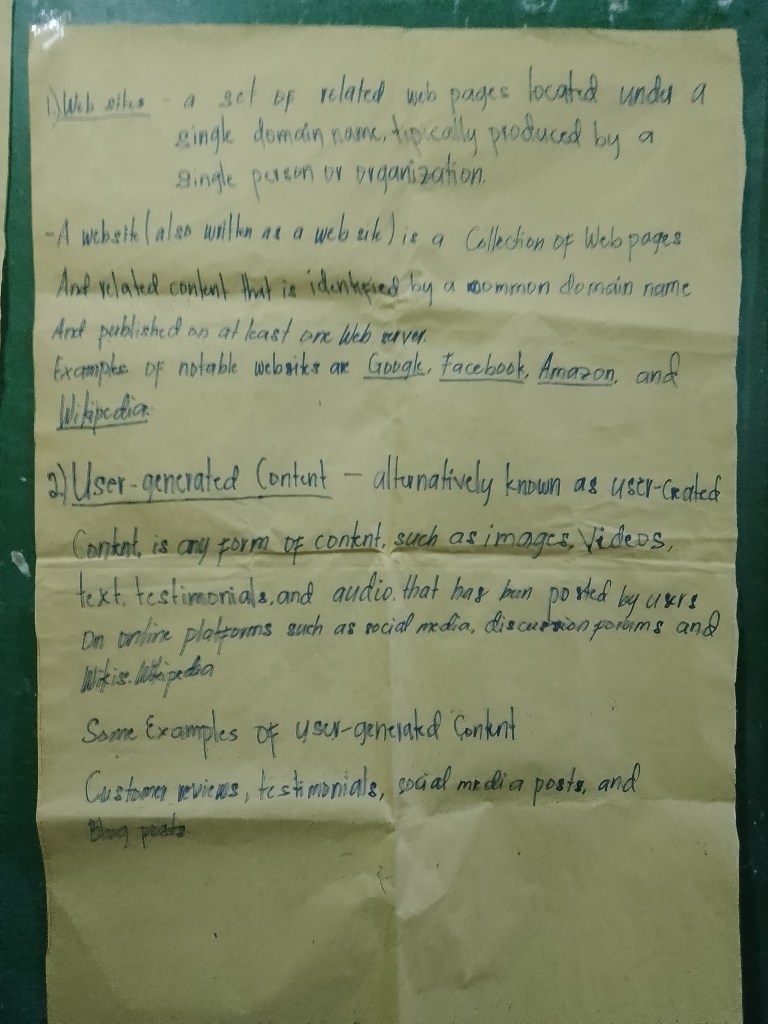 1) Web sites - a set of related web pages located under a
single domain name, tipically produced by a
single person or organization.
- A website (also written as a web site) is a Collection of Web pages
And related content that is identified by a common domain name
And published on at least one Web server.
Examples of notable websites are Google, Facebook, Amazon, and
Wikipedia.
2) User-generated Content - alternatively known as user-created
Content, is any form of content, such as images, Videos,
text, testimonials, and audio, that has been posted by users
On online platforms such as social media, discussion forums and
Wikis. Wikipedia
Some Examples of user-generated Content
Customer reviews, testimonials, social media posts, and
Blog posts.